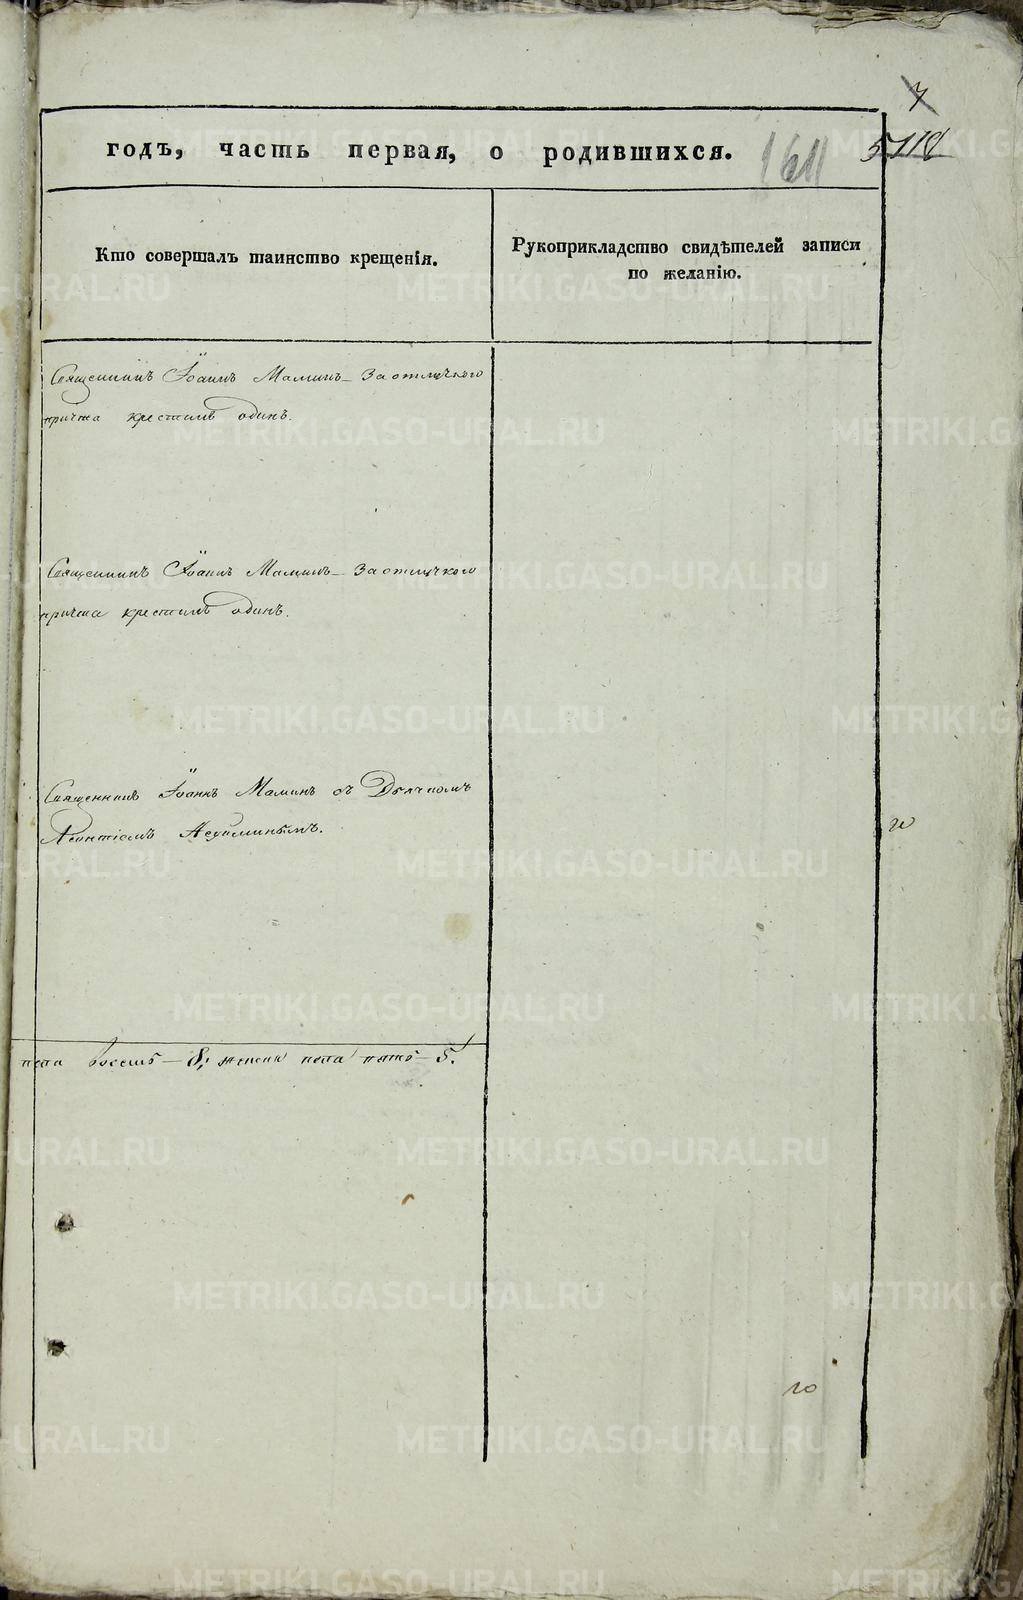 7
5118
161
годъ, часть первая, о родившихся.
Кто совершалъ таинство крещенія.
Рукоприкладство свидѣтелей записи
по желанію.
Священникъ Іоаннъ Маминъ
причта крестилъ одинъ.
Священникъ Іоаннъ Маминъ
причта крестилъ одинъ.
Священникъ Іоаннъ Маминъ съ Дьячкомъ
Леонтіемъ
пола восемь — 8; женск пола пять — 5.
METRIKI.GASO-URAL.RU